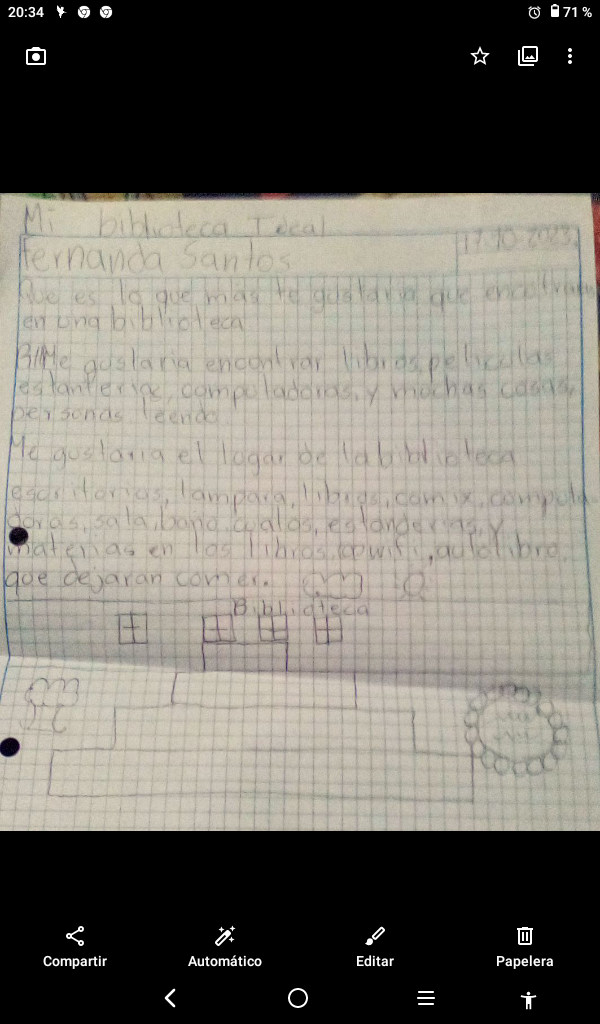 20:34
71 %
Mi biblioteca Ideal
17-10-2023
Fernanda Santos
Que es lo que más te gustaria que
en una biblioteca
R//Me gustaria encontrar libros, peliculas
estanteria, computadoras, y muchas cosas,
personas leendo
Me gustaria el lugar de la biblioteca
escritorias, lampara, libros, comix, computa-
doras, sala, baño, estanderias, y
materias en los libros, wifi, libro,
que dejaran comer.
Biblioteca
Compartir
Automático
Editar
Papelera